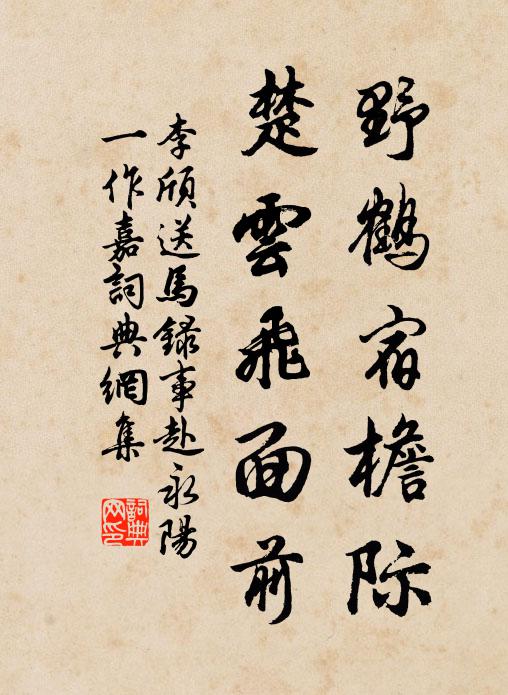 野鶴宿檐际
楚雲飛面前
李頎送馬録事赴永陽
一作嘉詞典網集
詞典
网印